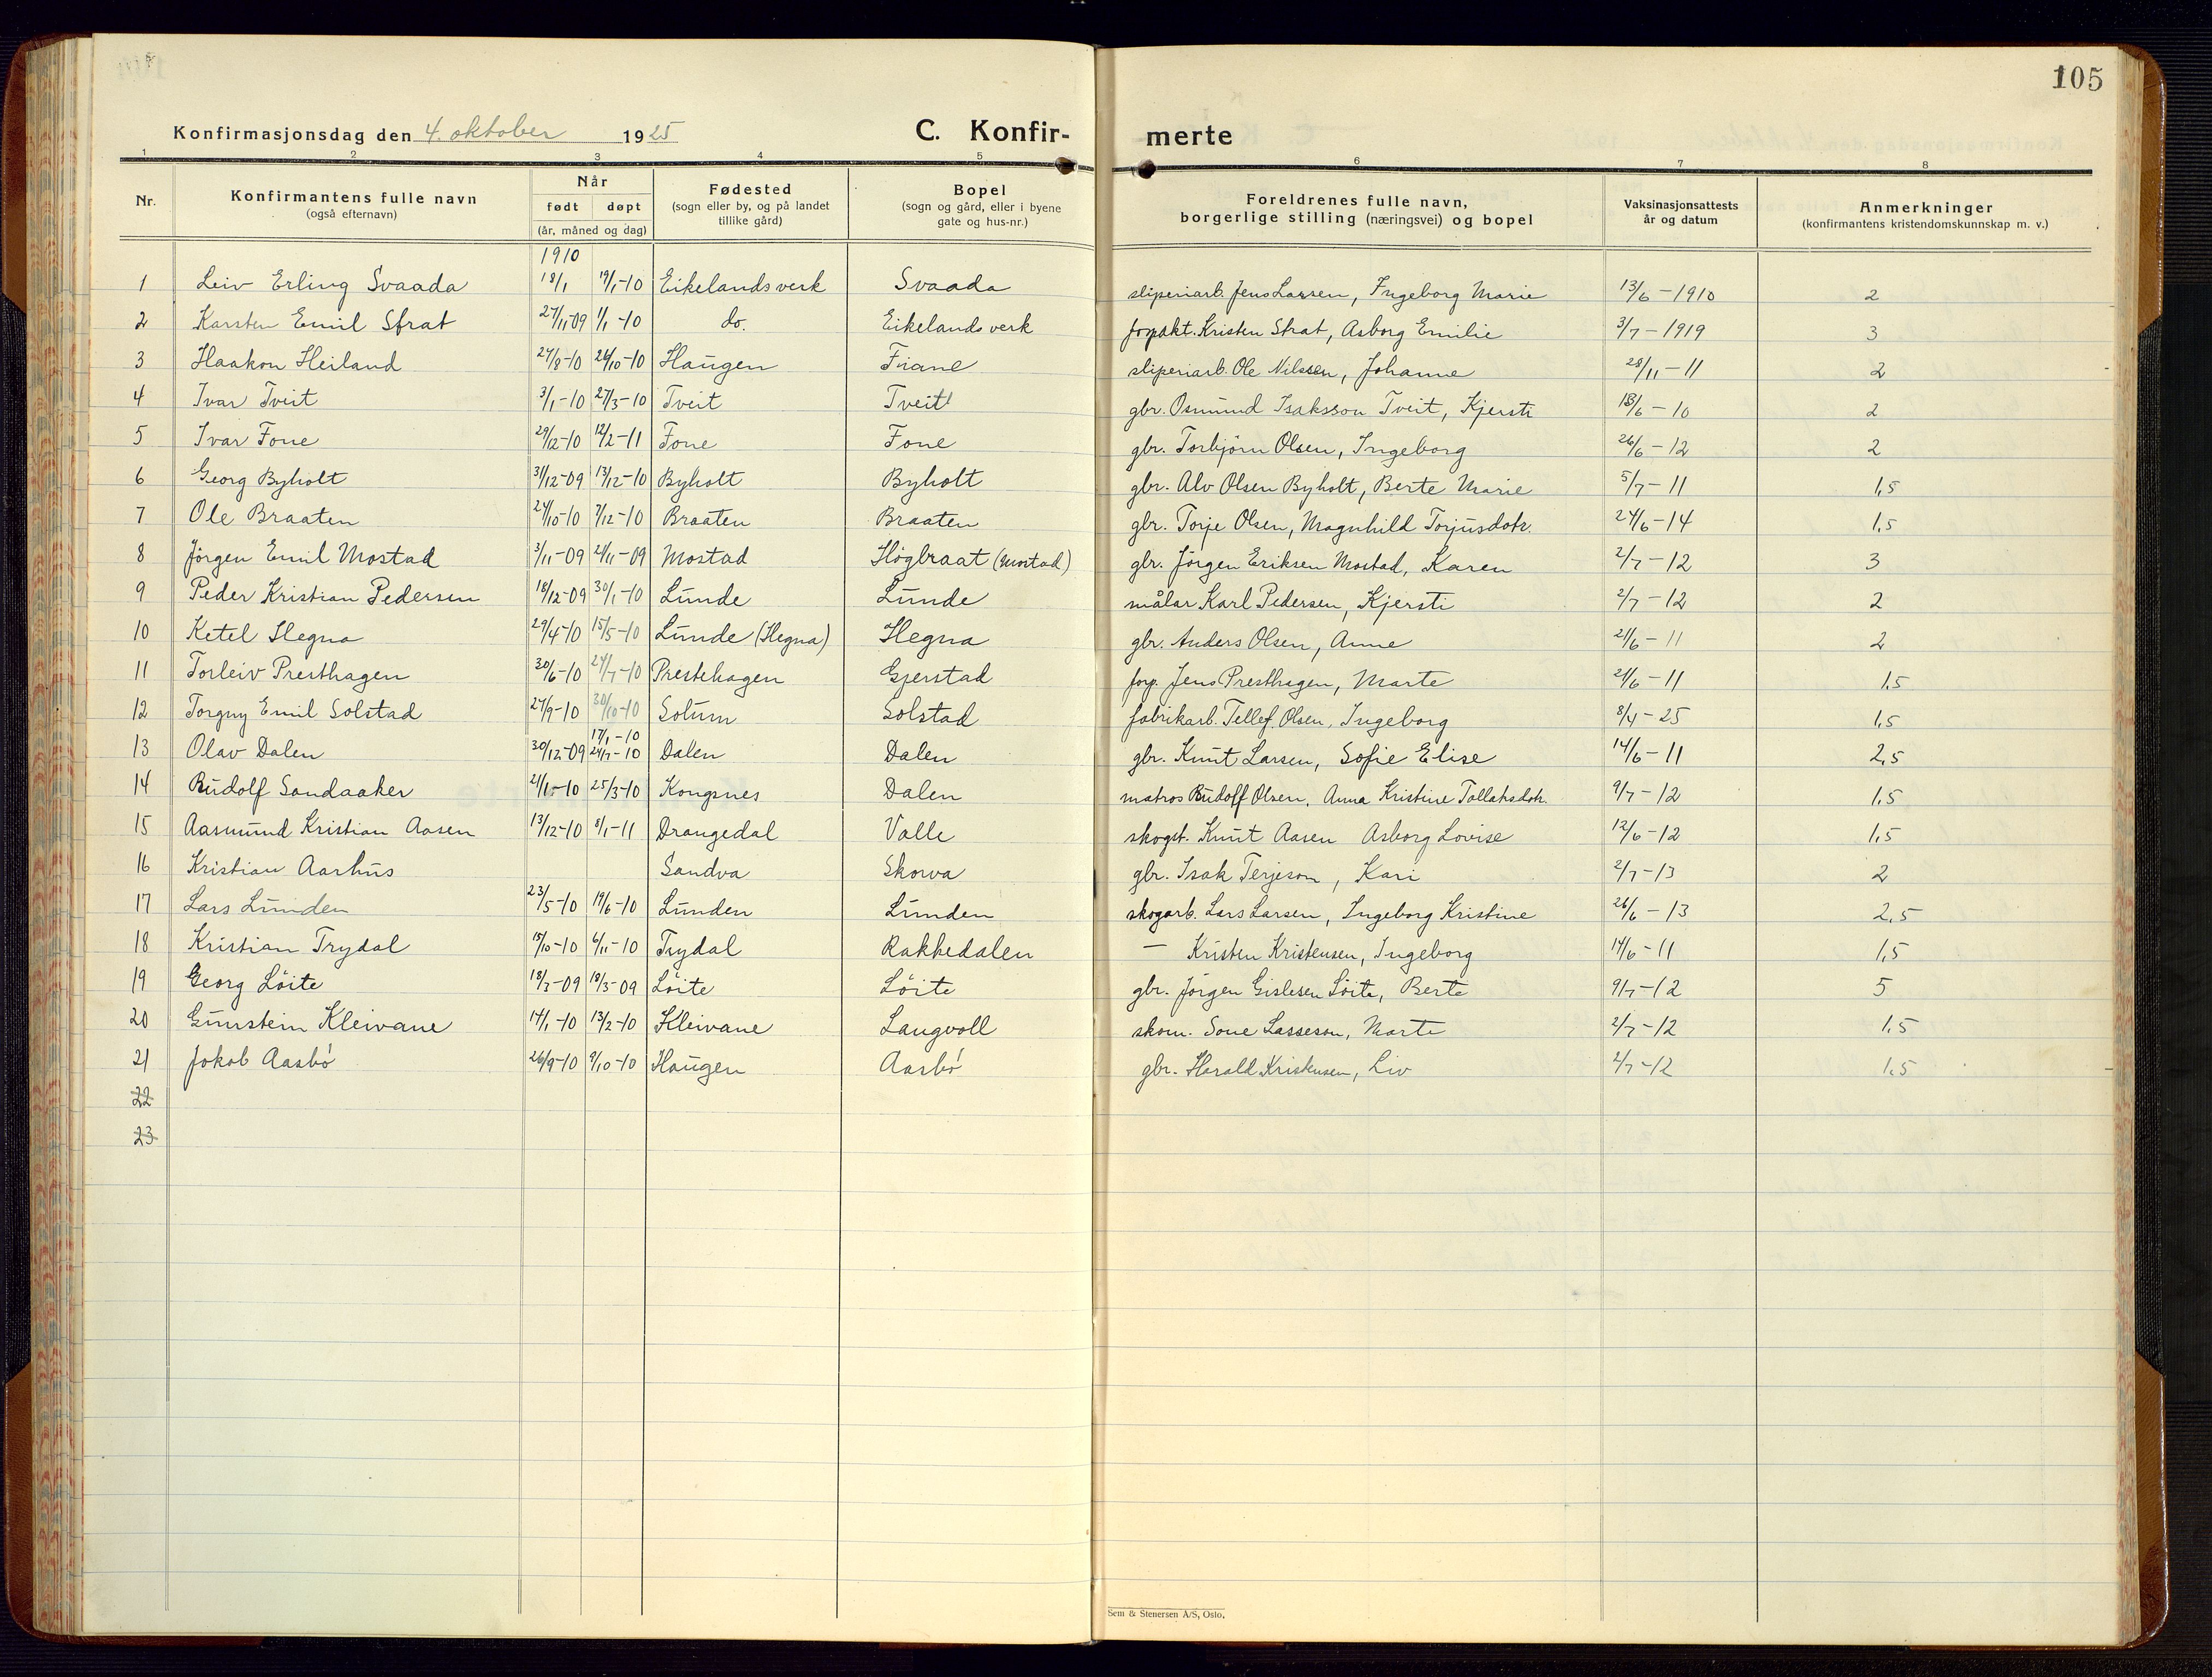 105
Konfirmasjonsdag den 4. oktober 1925 C. Konfir- merte
1 2 3 4 5 6 7 8
Nr. Konfirmantens fulle navn (også efternavn) Når født døpt (år, måned og dag) Fødested (sogn eller by, og på landet tillike gård) Bopel (sogn og gård, eller i byene gate og hus-nr.) Foreldrenes fulle navn, borgerlige stilling (næringsvei) og bopel Vaksinasjonsattests år og datum Anmerkninger (konfirmantens kristendomskunnskap m. v.)
1910
1 Leiv Erling Svaada 18/1 19/1-10 Eikelandsverk Svaada sliperiarb. Jens Larsen, Ingeborg Marie 13/6-1910 2
2 Karsten Emil Strat 27/11-09 1/1-10 do. Eikelandsverk forpakt. Kristen Strat, Asborg Emilie 3/7-1919 3
3 Haakon Heiland 27/8-10 26/10-10 Haugen Fiane sliperiarb. Ole Nilssen, Johanne 28/11-11 2
4 Ivar Tveit 3/1-10 27/3-10 Tveit Tveit gbr. Osmund Isaksson Tveit, Kjersti 18/6-10 2
5 Ivar Fone 29/12-10 12/2-11 Fone Fone gbr. Torbjörn Olsen, Ingeborg 26/6-12 2
6 Georg Byholt 31/12-09 13/12-10 Byholt Byholt gbr. Alv Olsen Byholt, Berte Marie 5/7-11 1,5
7 Ole Braaten 24/10-10 7/12-10 Braaten Braaten gbr. Torje Olsen, Magnhild Torjusdotr. 24/6-14 1,5
8 Jörgen Emil Mostad 3/11-09 21/11-09 Mostad Högbraat (Mostad) gbr. Jörgen Eriksen Mostad, Karen 2/7-12 3
9 Peder Kristian Pedersen 18/12-09 30/1-10 Lunde Lunde målar Karl Pedersen, Kjersti 2/7-12 2
10 Ketel Hegna 29/4-10 15/5-10 Lunde (Hegna) Hegna gbr. Anders Olsen, Anne 21/6-11 2
11 Torleiv Presthagen 30/6-10 24/7-10 Prestehagen Gjerstad forp. Jens Presthagen, Marte 21/6-11 1,5
12 Torgny Emil Solstad 27/9-10 30/10-10 Solum Solstad fabrikarb. Tellef Olsen, Ingeborg 8/4-25 1,5
17/1-10
13 Olav Dalen 30/12-09 24/7-10 Dalen Dalen gbr. Knut Larsen, Sofie Elise 14/6-11 2,5
14 Rudolf Sandaaker 21/1-10 25/3-10 Kongsnes Dalen matros Rudolf Olsen, Anna Kristine Tallaksdotr. 9/7-12 1,5
15 Aasmund Kristian Aasen 13/12-10 8/1-11 Drangedal Valle skogst. Knut Aasen Asborg Lovise 12/6-12 1,5
16 Kristian Aarhus Sandva Skorva gbr. Isak Terjeson, Kari 2/7-13 2
17 Lars Lunden 23/5-10 19/6-10 Lunden Lunden skogarb. Lars Larsen, Ingeborg Kristine 26/6-13 2,5
18 Kristian Trydal 15/10-10 6/11-10 Trydal Rakkedalen — Kristen Kristensen, Ingeborg 14/6-11 1,5
19 Georg Löite 18/3-09 18/3-09 Löite Löite gbr. Jörgen Gislesen Löite, Berte 9/7-12 5
20 Gunstein Kleivane 14/1-10 13/2-10 Kleivane Langvoll skom. Sone Lasseson, Marte 2/7-12 1,5
21 Jokob Aasbö 26/9-10 9/10-10 Haugen Aasbö gbr. Harald Kristensen, Liv 2/7-12 1,5
22
23
Sem & Stenersen A/S, Oslo.